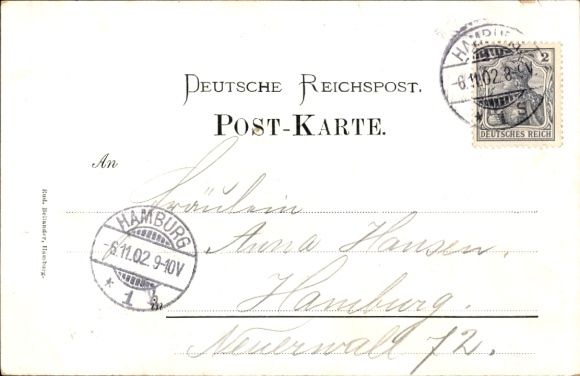 HAMBURG
-6.11.02. 8-9V
* 1 S
2
DEUTSCHES REICH
DEUTSCHE REICHSPOST.
POST-KARTE.
An
Fräulein
Anna Hansen.
Hamburg.
Neuerwall 72.
HAMBURG
-6.11.02. 9-10V
* 1
in
Rud. Bellander, Hamburg.